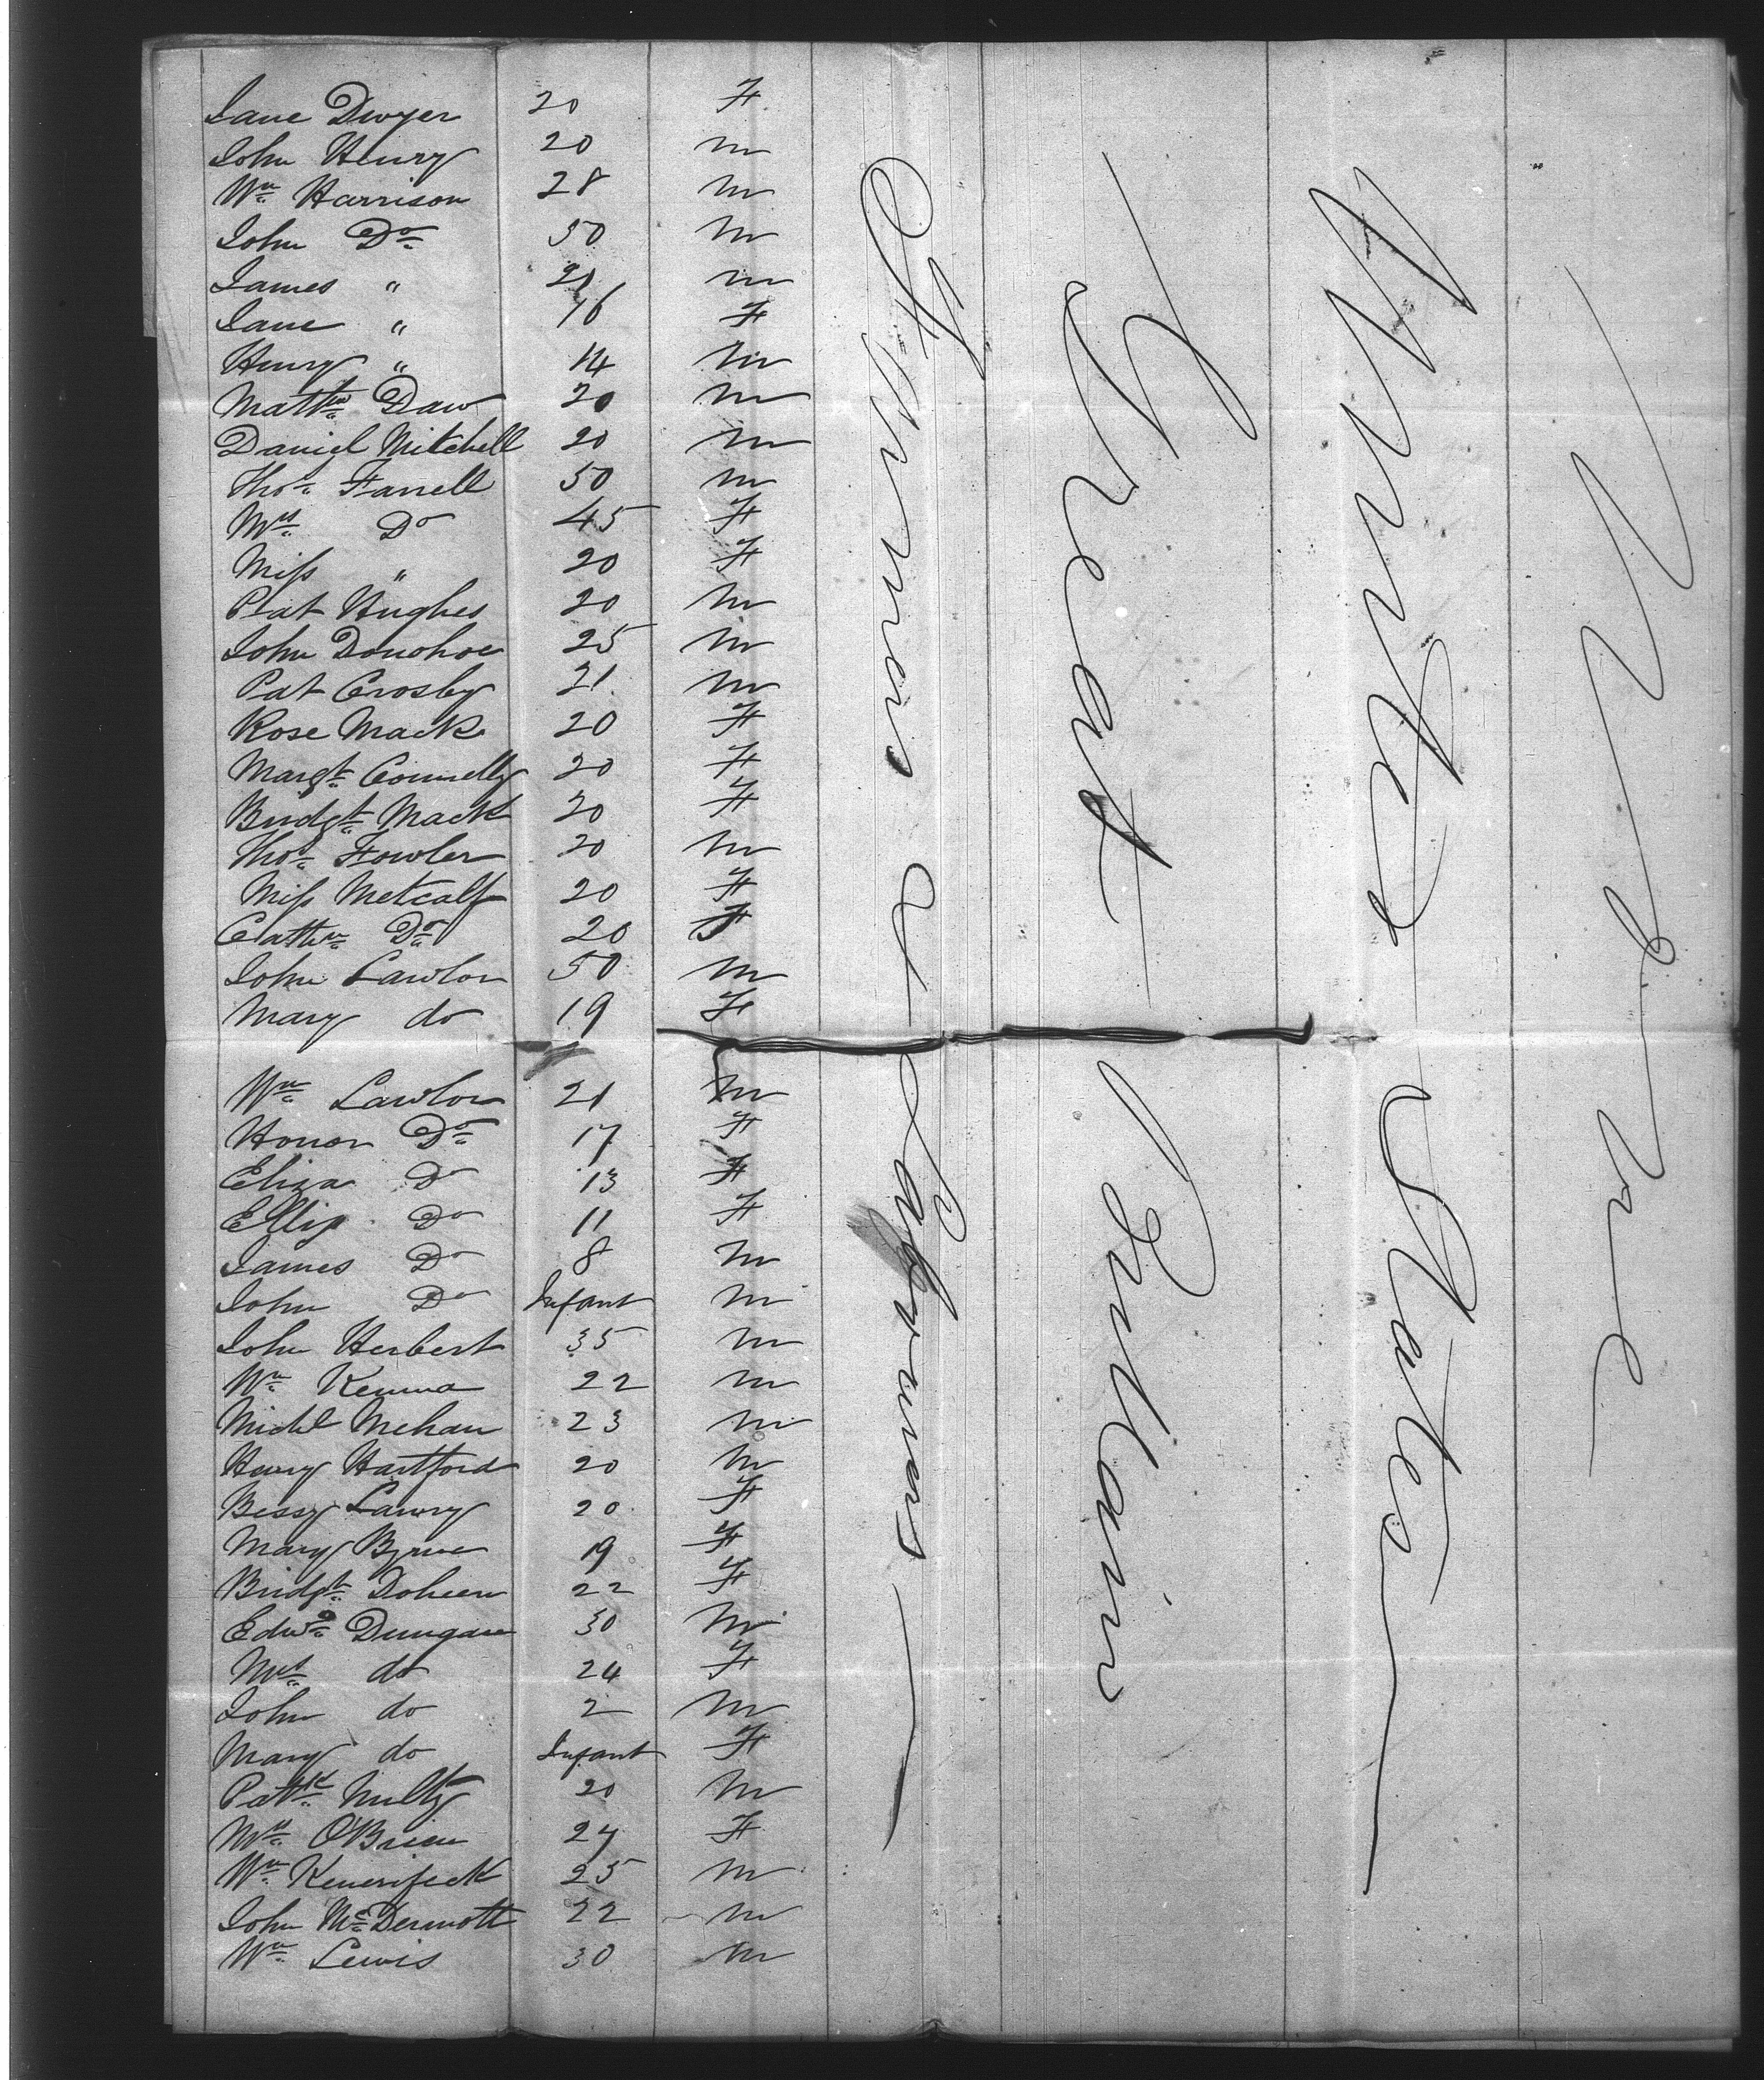 Jane Dwyer 20 F
John Henry 20 m
Wm Harrison 28 m
John Do 50 m
James " 21 m
Jane " 16 F
Henry " 14 m
Matthw Daw 20 m
Daniel Mitchell 20 m
Thos Farrell 50 m
Mrs Do 45 F
Miss " 20 F
Pat Hughes 20 m
John Donohoe 25 m
Pat Crosby 21 m
Rose Mack 20 F
Margt Connelly 20 F
Bridgt Mack 20 F
Thos Fowler 20 m
Miss Metcalf 20 F
Cathn Do 20 F
John Lawlor 50 m
Mary do 19 F
Wm Lawlor 21 m
Honor Do 17 F
Eliza Do 13 F
Do 11 F
James Do 8 m
John Do Infant m
John Herbert 35 m
Wm Kenna 22 m
Michl Mehan 23 m
Henry Hartford 20 m
Bessy Lawry 20 F
Mary Byrne 19 F
Bridgt Doheen 22 F
Edwd Dungan 30 m
Mrs do 24 F
John do 2 m
Mary do Infant F
Patk Nulty 20 m
Mrs O'Brien 24 F
Wm 25 m
John McDermott 22 m
Wm Lewis 30 m
Farmers & Laborers
Great Britain
United States